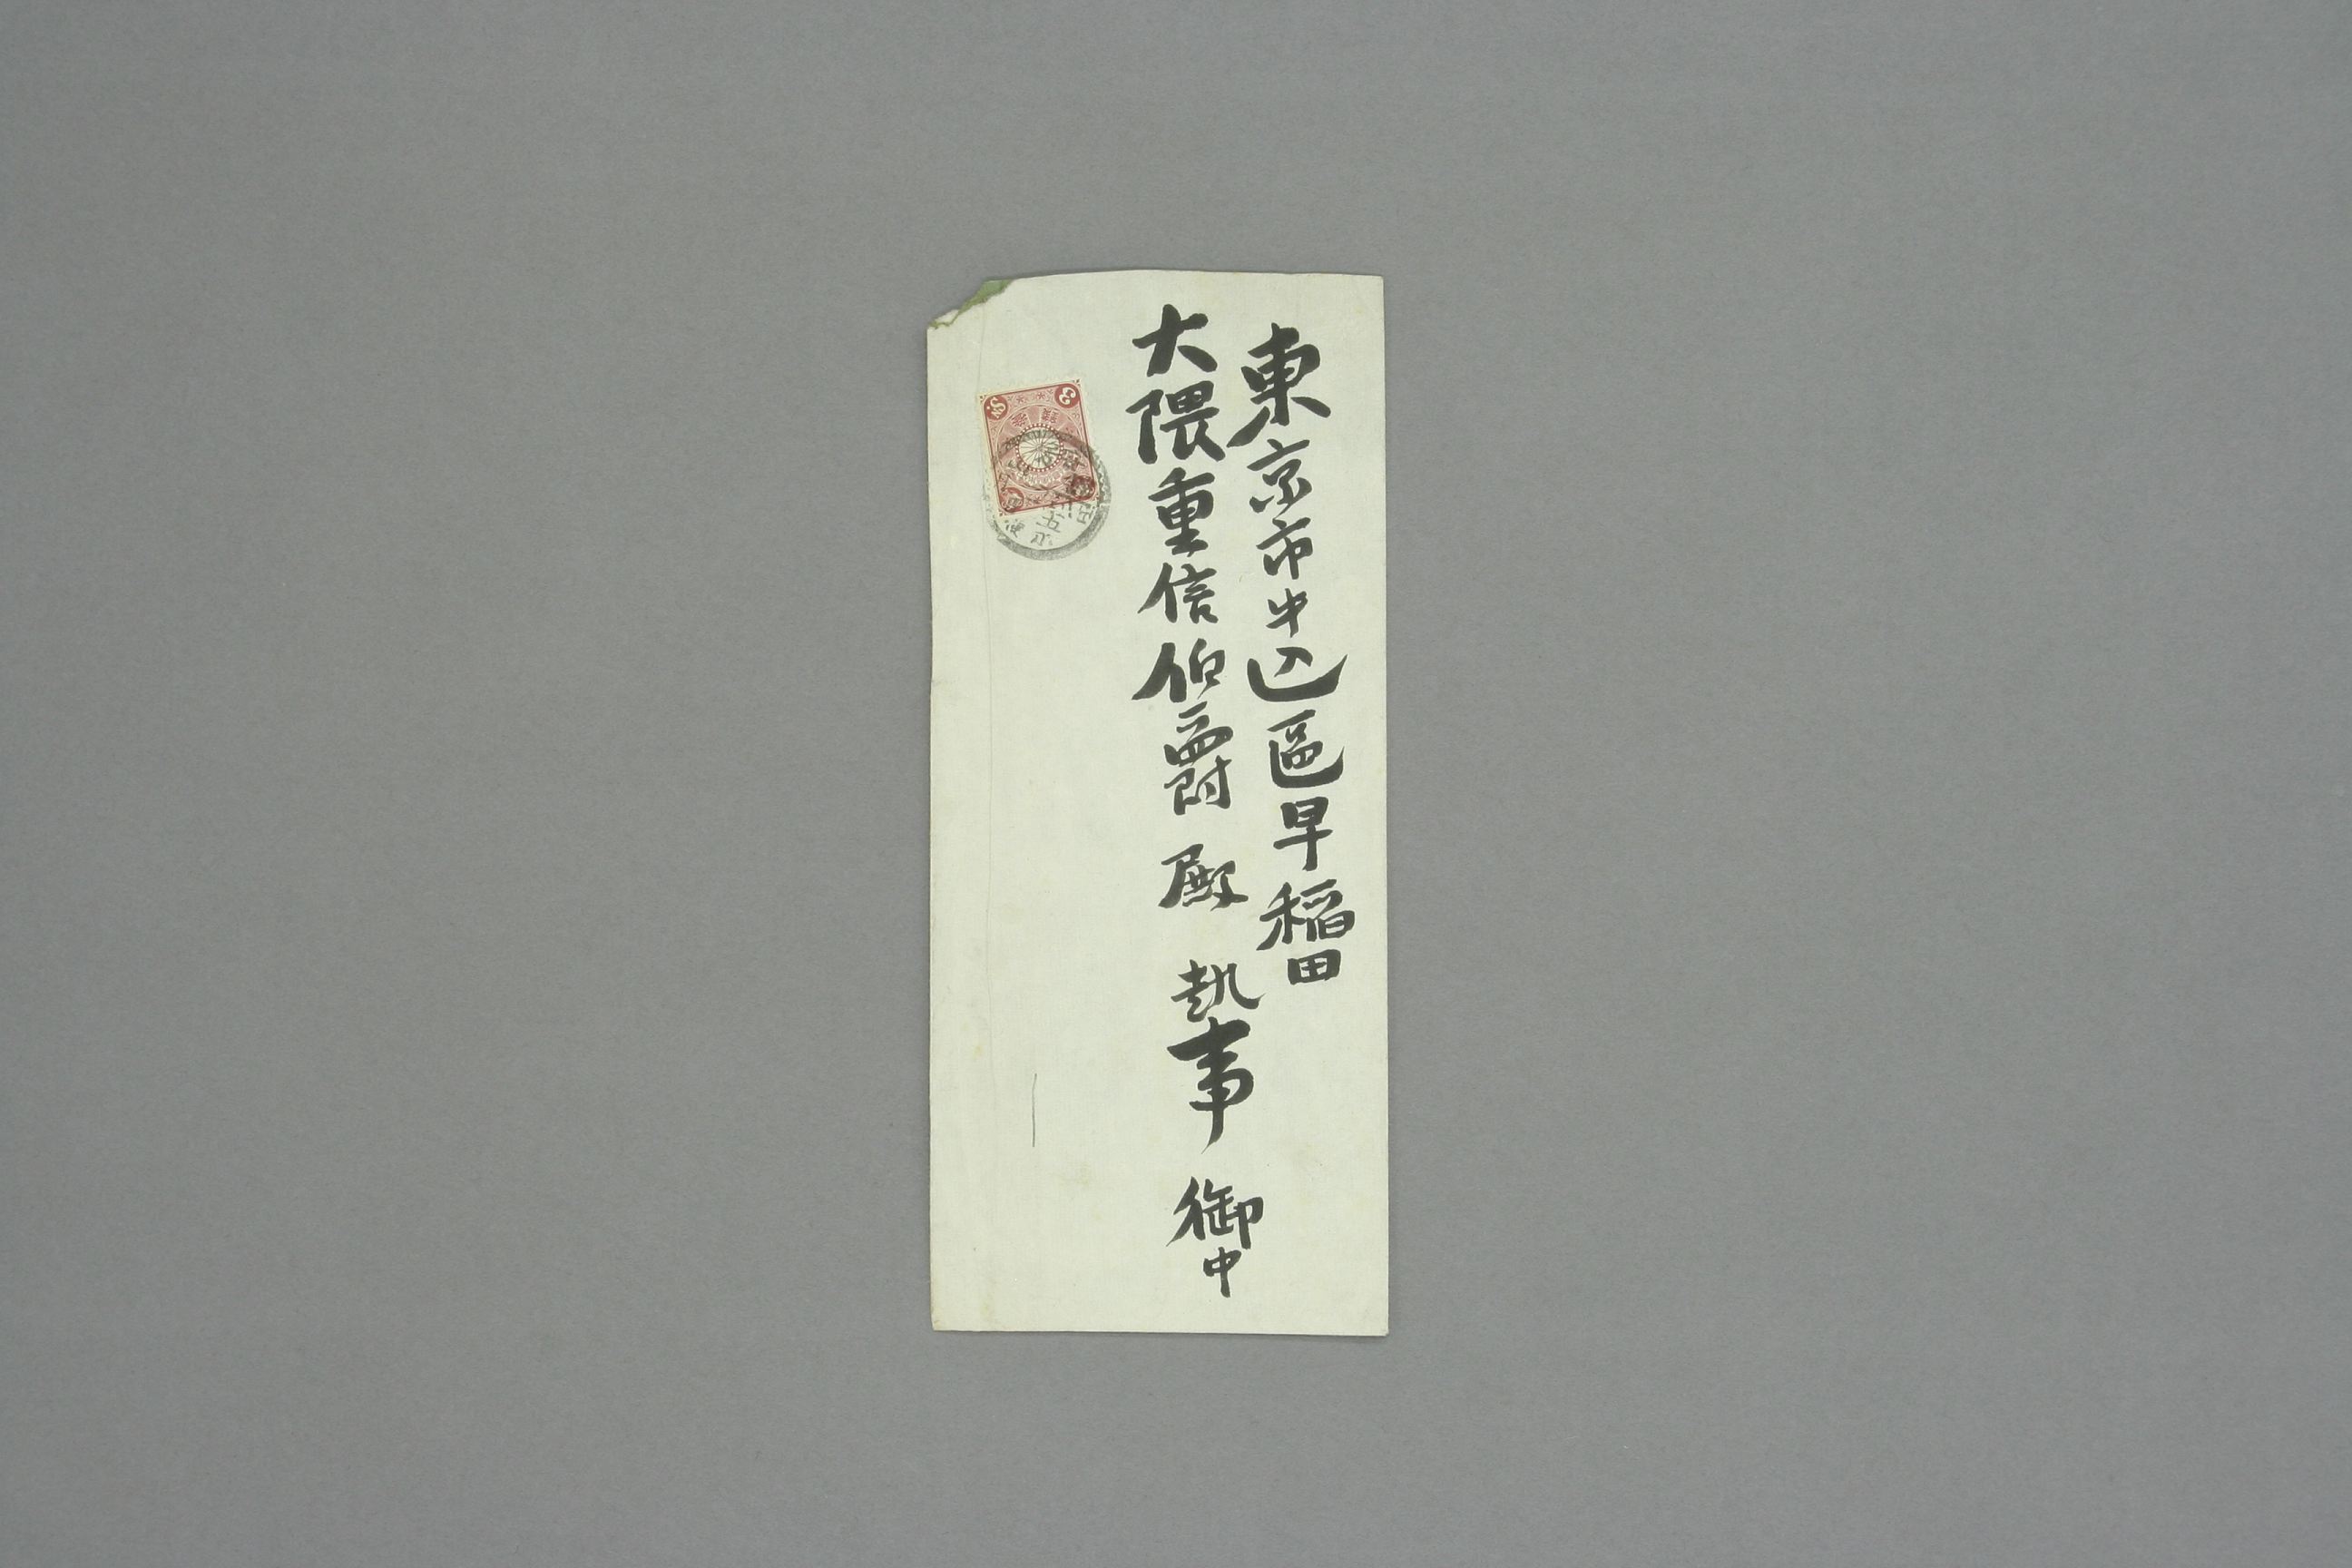 東京市牛込區早稲田
大隈重信伯爵殿 執事 御中